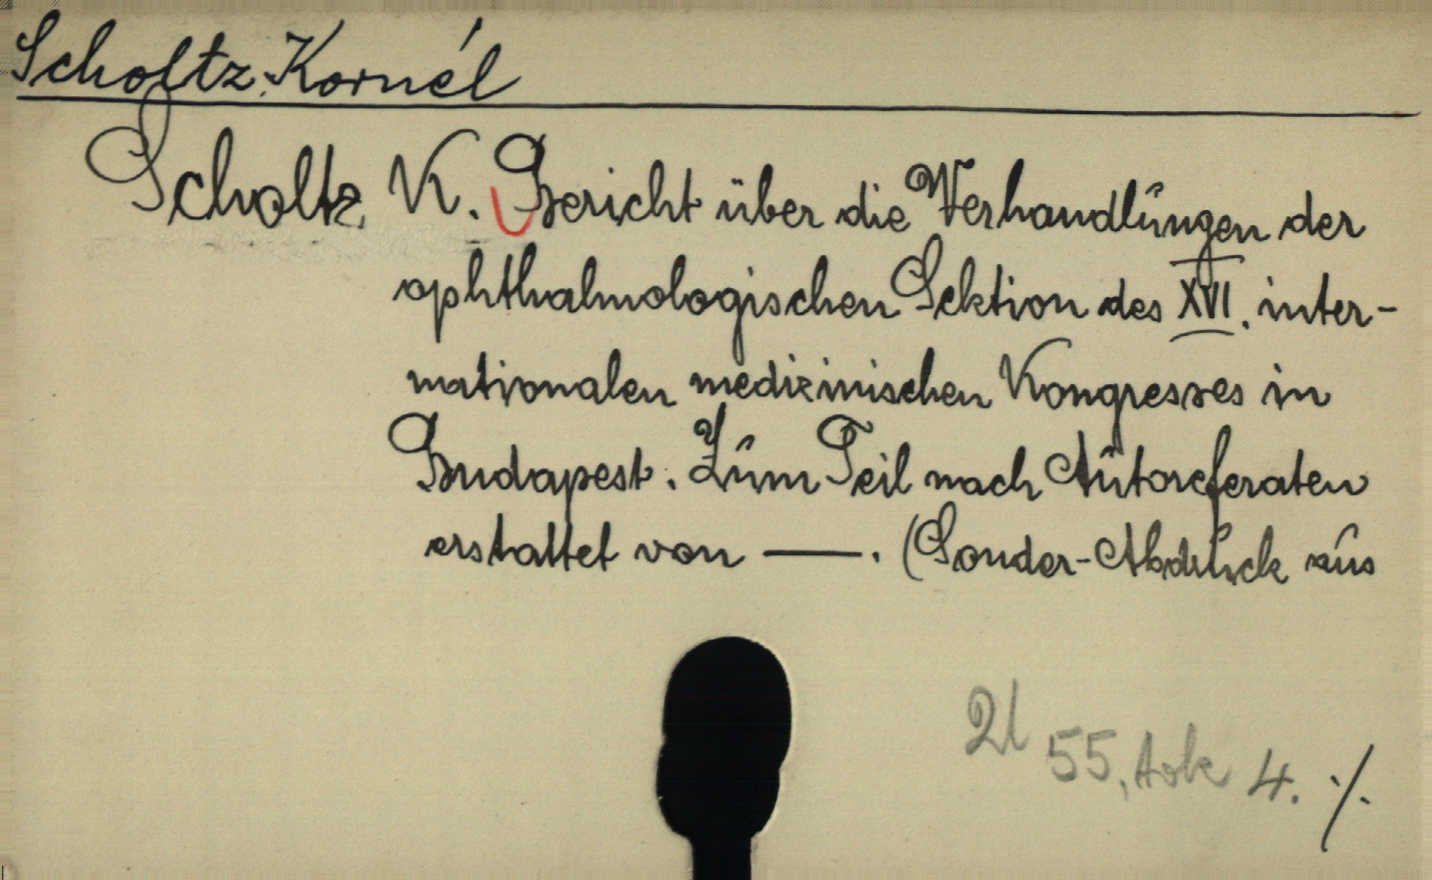 Scholtz Kornél
Scholtz K. Bericht über die Verhandlungen der
ophthalmologischen Sektion des XVI. inter-
nationalen medizinischen Kongresses in
Budapest. Zum Teil nach Autoreferaten
erstattet von —. (Sonder-Abdruck aus
55,
4. ./.